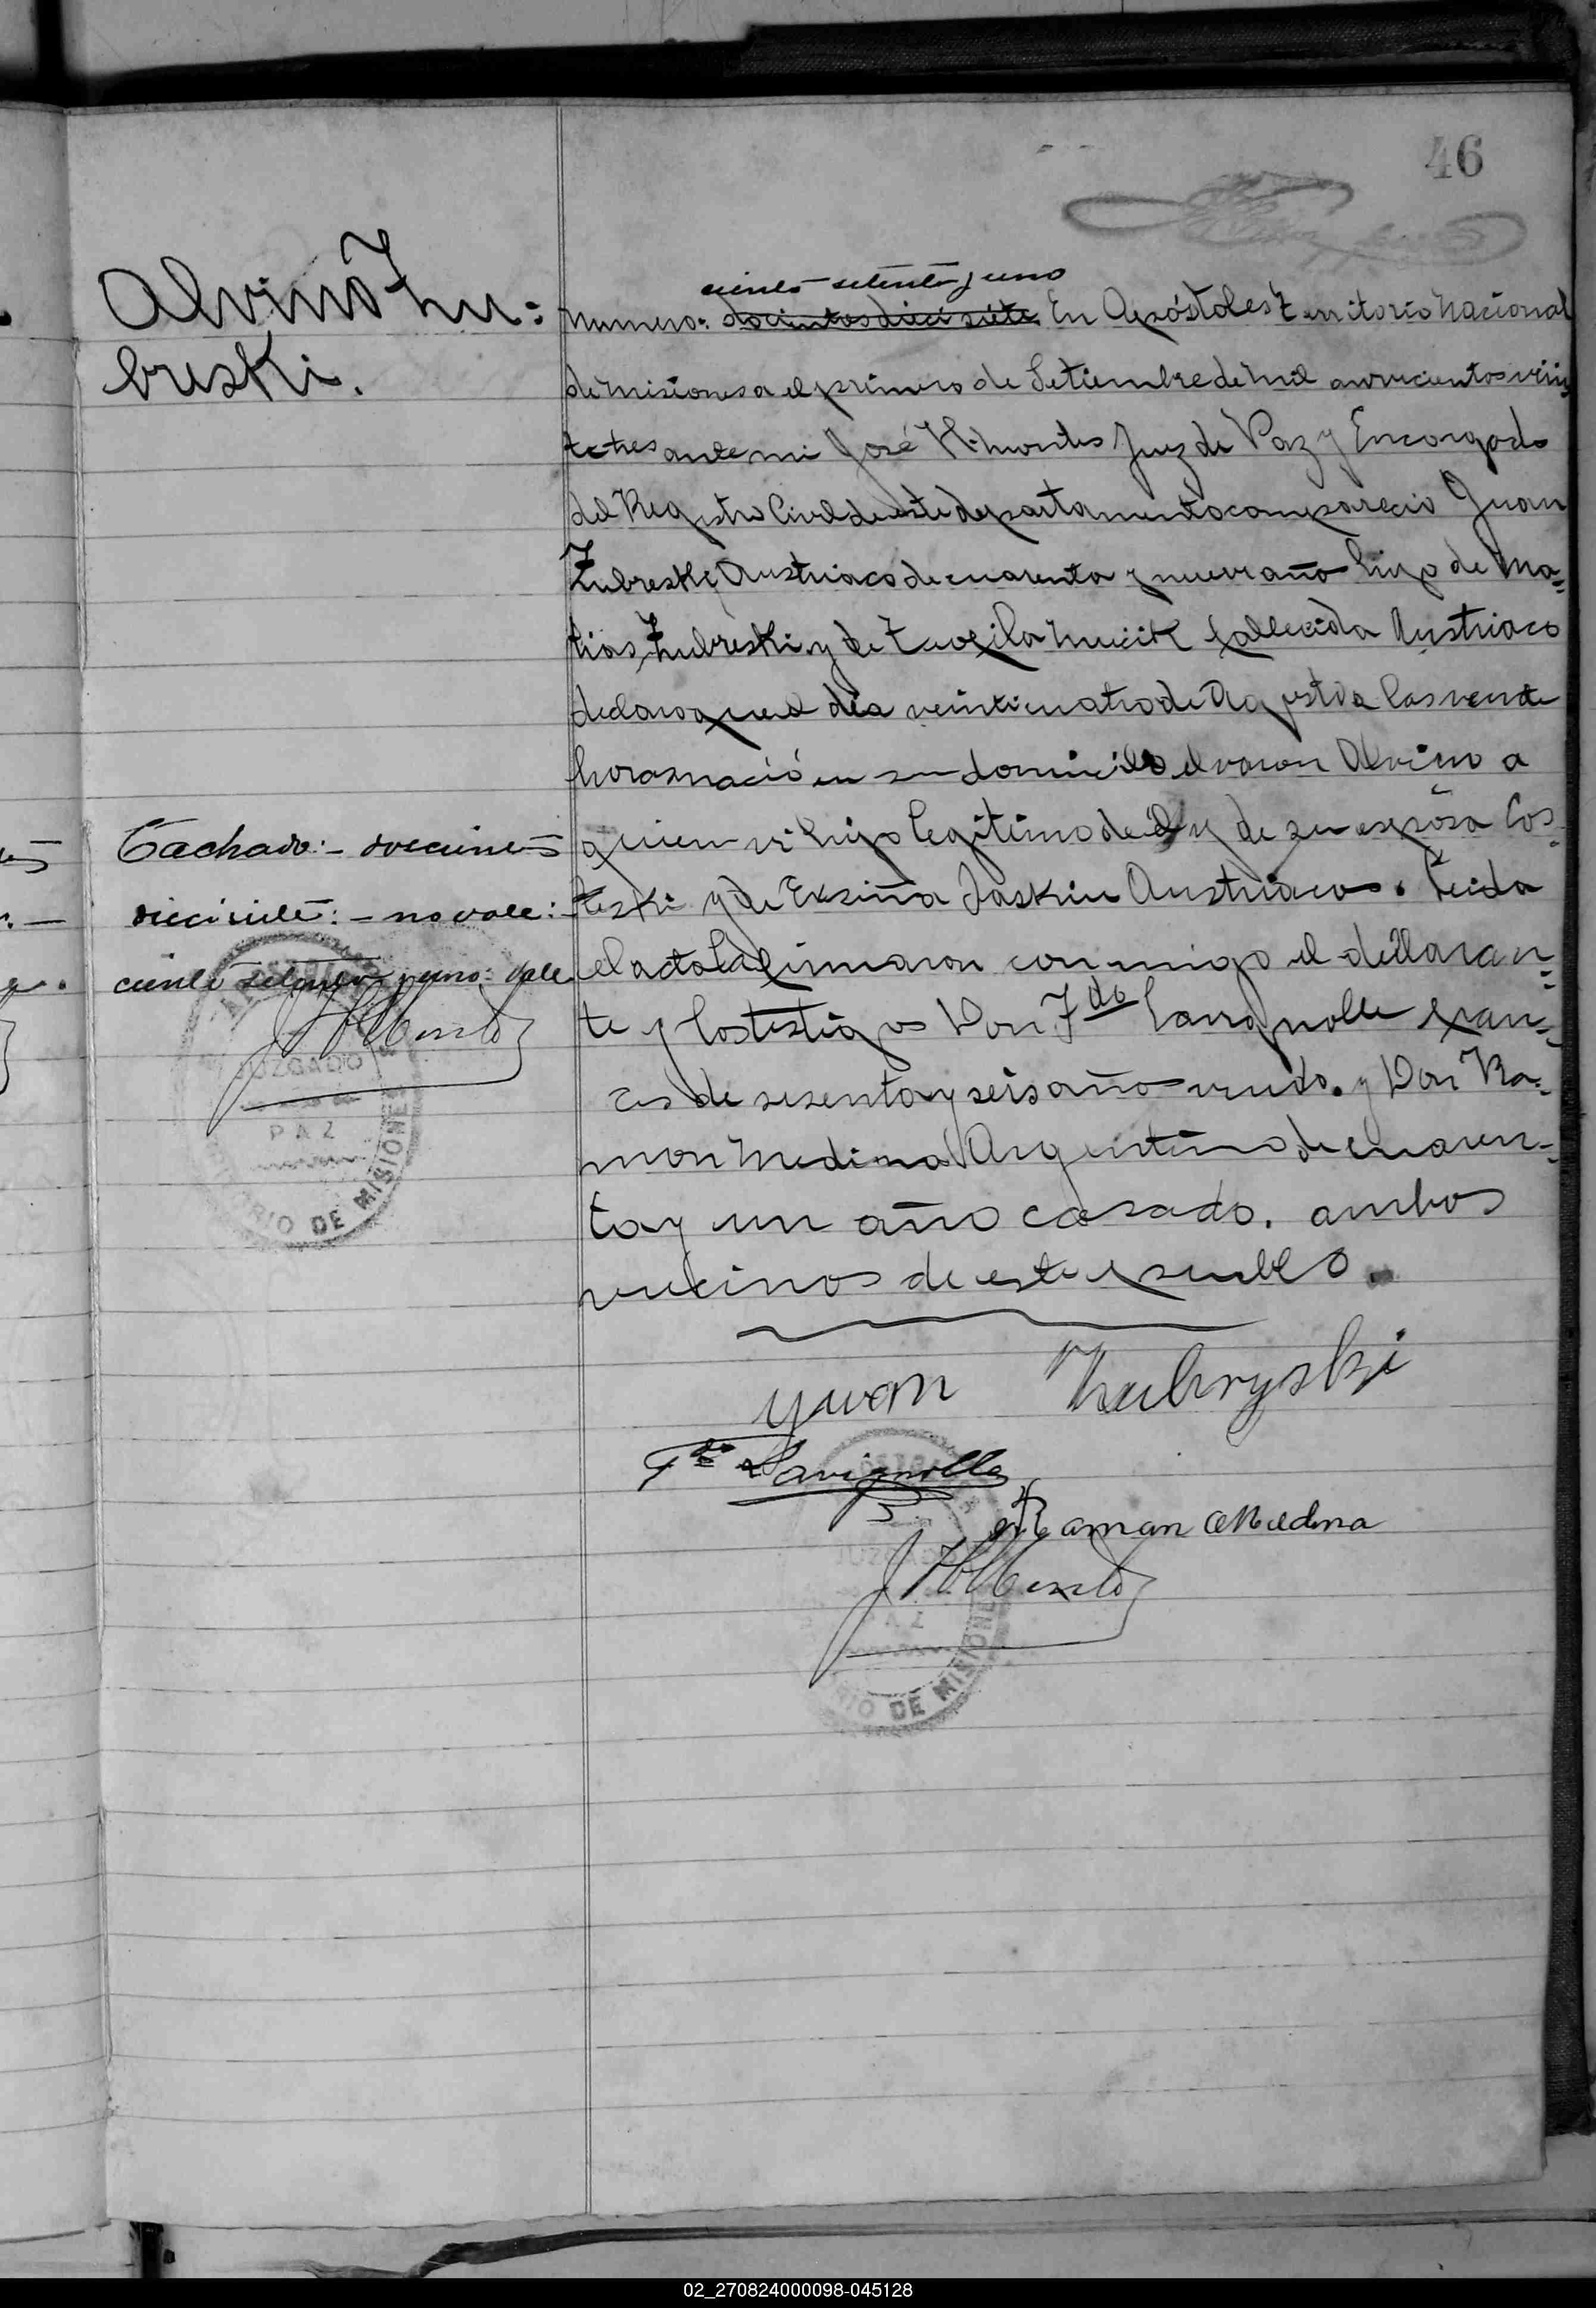 46
Alvino Zu=
breski.
ciento setenta y uno
Numero: docientos dieci siete En Apóstoles Territorio Nacional
de Misiones a el primero de Setiembre de mil novecientos vein
te tres ante mi José H. Montes Juez de Paz y Encargado
del Registro Civil de este departamento comparecio Juan
Zubreski Austriaco de cuarenta y nueve año hijo de Ma=
tias Zubreski y de fallecida Austriaco
declaro que el dia veinticuatro de Agosto a las veinte
horas nació en su domicilio el varon Alvino a
quien vi hijo legitimo de él y de su esposa Cos=
teski y de Exsiña Jaskiu Austriacos. Leida
el acta la firmaron conmigo el declaran=
te y los testigos Don Fdo Lavignolle fran=
ces de sesenta y seis año viudo. y Don Ra=
mon Medina Argentino de cuaren=
ta y un año casado. ambos
vecinos de este pueblo.
Tachado:- doccientos
diecisiete:- no vale:-
ciento setenta y uno: vale
JHMontes
JUZGADO
PAZ
RIO DE MISIONES
Ywan Zubryski
Fdo Lavignolle
Raman Medina
JHMontes
JUZGADO
PAZ
RIO DE MISIONES
02_270824000098-045128